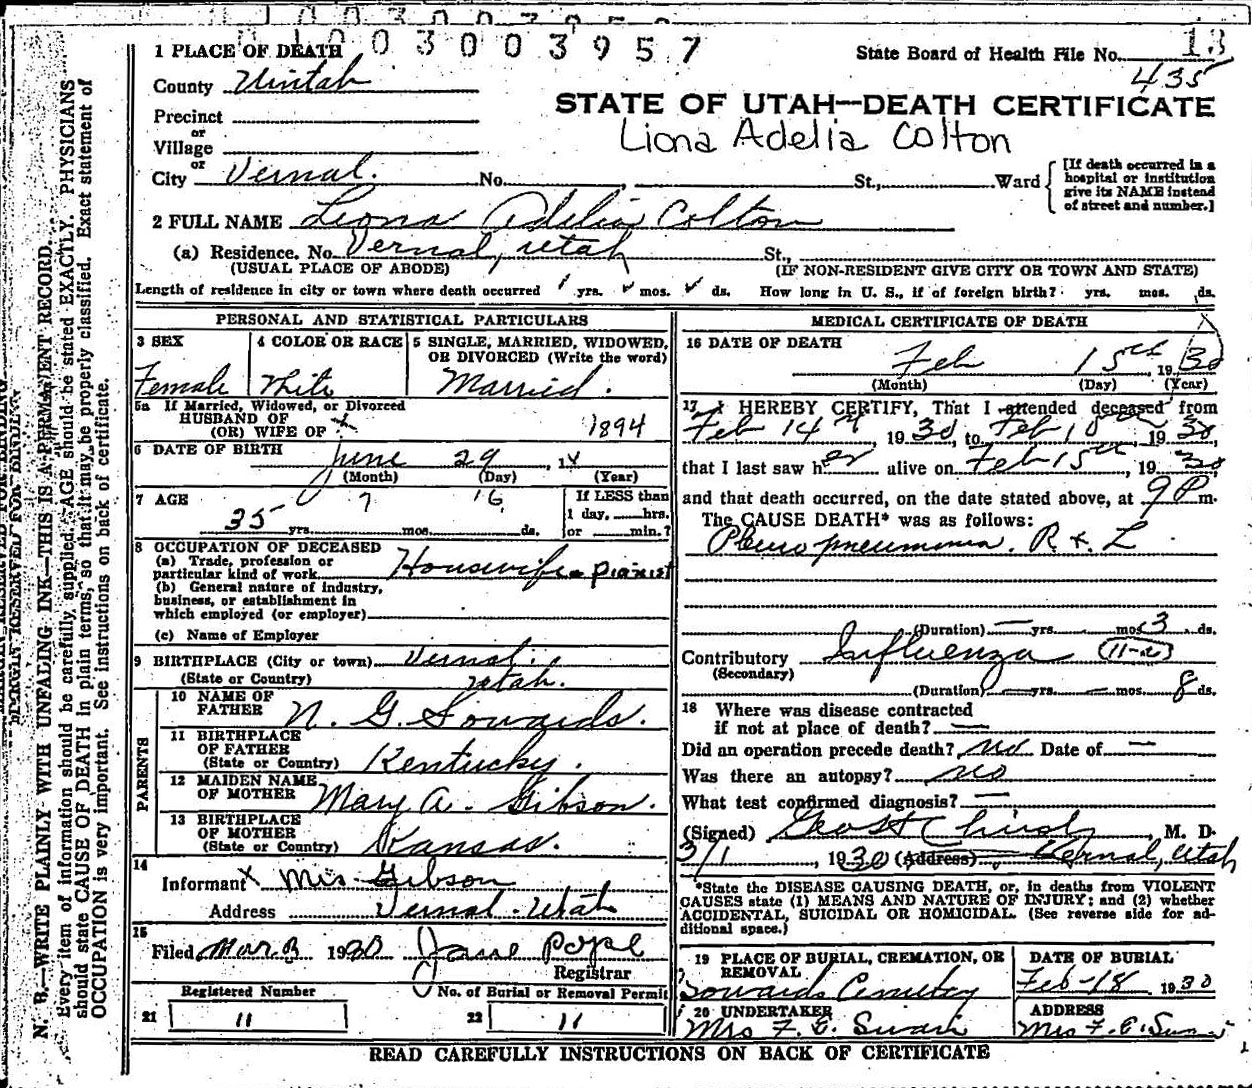 003003957
1 PLACE OF DEATH
State Board of Health File No. 13
County Uintah
435
STATE OF UTAH—DEATH CERTIFICATE
Precinct
or
Village
Liona Adelia Colton
or
City Vernal. No. , St., Ward
[If death occurred in a
hospital or institution
give its NAME instead
of street and number.]
2 FULL NAME Leona Adelia Colton
(a) Residence. No. Vernal, Utah St.,
(USUAL PLACE OF ABODE) (IF NON-RESIDENT GIVE CITY OR TOWN AND STATE)
Length of residence in city or town where death occurred yrs. mos. ds. How long in U. S., if of foreign birth? yrs. mos. ds.
PERSONAL AND STATISTICAL PARTICULARS
3 SEX
Female
4 COLOR OR RACE
White
5 SINGLE, MARRIED, WIDOWED,
OR DIVORCED (Write the word)
Married.
5a If Married, Widowed, or Divorced
HUSBAND OF
(OR) WIFE OF
1894
6 DATE OF BIRTH June 29
(Month) (Day) (Year)
7 AGE
35 yrs. 7 mos. 16 ds.
If LESS than
1 day, hrs.
or min.?
8 OCCUPATION OF DECEASED
(a) Trade, profession or
particular kind of work Housewife pianist
(b) General nature of industry,
business, or establishment in
which employed (or employer)
(c) Name of Employer
9 BIRTHPLACE (City or town) Vernal,
(State or Country) Utah.
PARENTS
10 NAME OF
FATHER N. G. Sowards.
11 BIRTHPLACE
OF FATHER
(State or Country) Kentucky.
12 MAIDEN NAME
OF MOTHER Mary A. Gibson.
13 BIRTHPLACE
OF MOTHER
(State or Country) Kansas.
14
Informant x Mrs Gibson
Address Vernal Utah
15
Filed Mar. 3 1930 Jane Pope
Registrar
Registered Number
21 11
No. of Burial or Removal Permit
22 11
MEDICAL CERTIFICATE OF DEATH
16 DATE OF DEATH
Feb 15th, 1930
(Month) (Day) (Year)
17 I HEREBY CERTIFY, That I attended deceased from
Feb 14th, 1930, to Feb 15th, 1930,
that I last saw her alive on Feb 15th, 1930
and that death occurred, on the date stated above, at 9 P m.
The CAUSE DEATH* was as follows:
Pleuro pneumonia. R & L
(Duration) — yrs. mos. 3 ds.
Contributory Influenza (11-a)
(Secondary)
(Duration) — yrs. — mos. 8 ds.
18 Where was disease contracted
if not at place of death? —
Did an operation precede death? no Date of —
Was there an autopsy? no
What test confirmed diagnosis? —
(Signed) , M. D.
3/1, 1930 (Address) Vernal, Utah
*State the DISEASE CAUSING DEATH, or, in deaths from VIOLENT
CAUSES state (1) MEANS AND NATURE OF INJURY; and (2) whether
ACCIDENTAL, SUICIDAL OR HOMICIDAL. (See reverse side for ad-
ditional space.)
19 PLACE OF BURIAL, CREMATION, OR
REMOVAL
Sowards Cemetery
DATE OF BURIAL
Feb-18 1930
20 UNDERTAKER
Mrs F. E. Swain
ADDRESS
Mrs F. E. Swain
READ CAREFULLY INSTRUCTIONS ON BACK OF CERTIFICATE
MARGIN RESERVED FOR BINDING
N. B.—WRITE PLAINLY WITH UNFADING INK—THIS IS A PERMANENT RECORD.
Every item of information should be carefully supplied. AGE should be stated EXACTLY. PHYSICIANS
should state CAUSE OF DEATH in plain terms, so that it may be properly classified. Exact statement of
OCCUPATION is very important. See instructions on back of certificate.